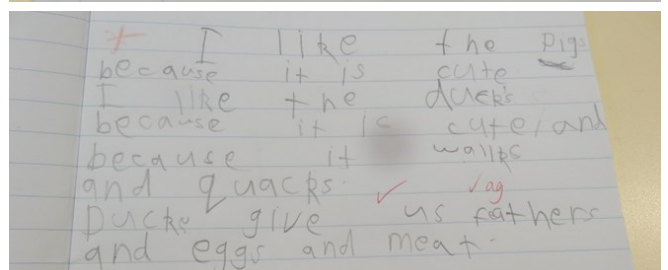 I like the pigs
because it is cute
I like the ducks
because it is cute, and
because it wallks
and quacks.
Ducks give us feathers
and eggs and meat.